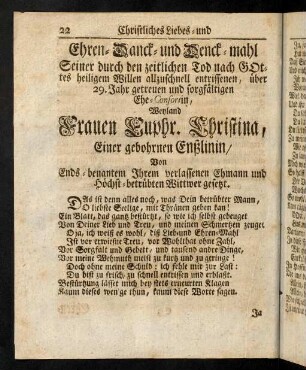 22 Christliches Liebes- und
Ehren-Danck- und Denck-mahl
Seiner durch den zeitlichen Tod nach GOt-
tes heiligem Willen allzuschnell entrissenen, über
29. Jahr getreuen und sorgfältigen
Ehe-Consortin,
Weyland
Frauen Euphr. Christina,
Einer gebohrnen Enßlinin/
Von
Ends-benantem Ihrem verlassenen Ehmann und
Höchst-betrübten Wittwer gesetzt.
DAs ist denn alles noch, was Dein betrübter Mann,
O liebste Seelige, mit Thränen geben kan!
Ein Blatt, das gantz bestürtzt, so wie ich selbst gebeuget
Von Deiner Lieb und Treu, und meinen Schmertzen zeuget
O ja, ich weiß es wohl, diß Lieb und Ehren-Mahl
Ist vor erwisne Treu, vor Wohlthat ohne Zahl,
Vor Sorgfalt und Gebett, und tausend andre Dinge,
Vor meine Wehmuth meist zu kurtz und zu geringe!
Doch ohne meine Schuld: ich fehle mir zur Last:
Du bist zu frisch, zu schnell entrissen und erblaßt.
Bestürtzung lässet mich bey stets erneurten Klagen
Kaum dieses wen'ge thun, kaum diese Worte sagen.
Ja